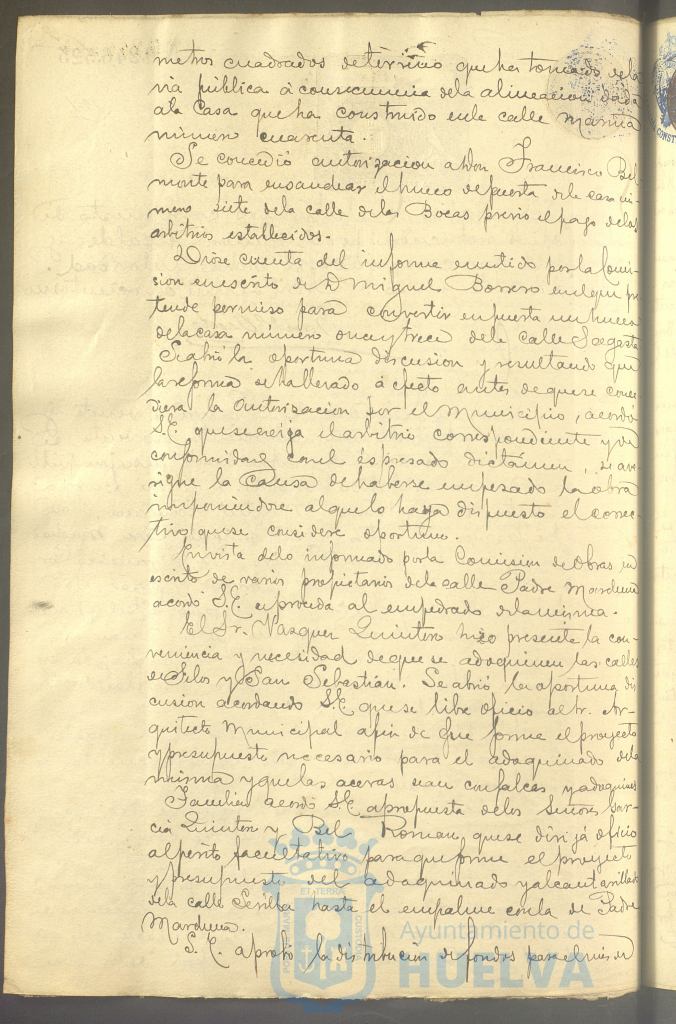 metros cuadrados de terreno que ha tomado de la
via pública á consecuencia de la alineacion dada
a la Casa que ha construido en la calle Marina
número cuarenta.
Se concedió autorizacion a Don Francisco Bel
monte para ensanchar el hueco de puerta de la casa nú
mero siete de la calle de las Bocas previo el pago de los
arbitrios establecidos.
Diose cuenta del informe emitido por la Comi
sion en escrito de D Miguel Borrero en el que pre
tende permiso para convertir en puerta un hueco
de la casa número once y trece de la calle Sagasta
Se abrió la oportuna discusion y resultando que
la reforma se ha llevado á efecto antes de que se conce
diera la autorizacion por el Municipio, acordó
S.E. que se exija el arbitrio correspondiente y de
conformidad con el espresado dictámen, se ave
rigue la causa de haberse empezado la obra
imponiendose al que lo haya dispuesto el correc
tivo que se considere oportuno.
En vista de lo informado por la Comision de Obras en
escrito de varios propietarios de la calle Padre Marchena
acordó S.E. se proceda al empedrado de la misma.
El Sr. Vazquez Quintero hizo presente la con
veniencia y necesidad de que se adoquinen las calles
de Silos y San Sebastián. Se abrió la oportuna dis
cusion acordando S.E. que se libre oficio al Sr. Ar
quitecto Municipal a fin de que forme el proyecto
y presupuesto necesario para el adoquinado de la
misma y que las aceras sean con y adoquines
Tambien acordó S.E. a propuesta de los Señores Gar
cia Quintero y Bel Roman, que se dirijá oficio
al périto facultativo para que forme el proyecto
y presupuesto del adoquinado y alcantarillado
de la calle Sevilla hasta el empalme con la de Padre
Marchena.
S. E. aprobó la distribucion de fondos para el mes de
Ayuntamiento de
HUELVA